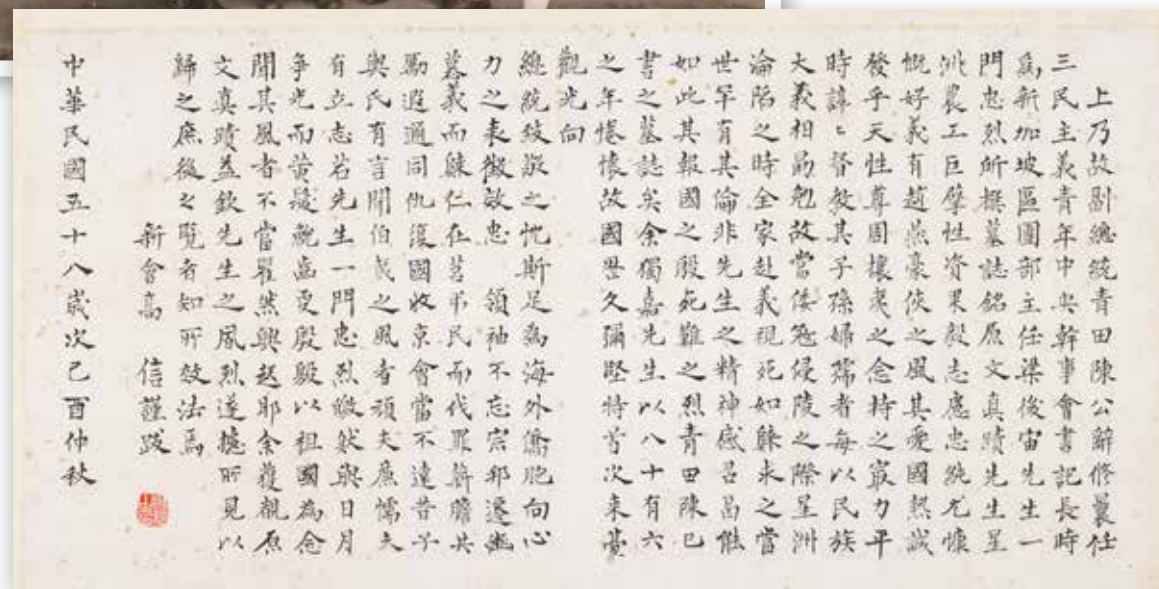 上乃故副總統青田陳公辭修曩任
三民主義青年中央幹事會書記長時
為新加坡區團部主任梁後宙先生一
門忠烈所撰墓誌銘原文真蹟先生星
洲農工巨擘性資果毅志慮忠純尤慷
慨好義有趙燕豪俠之風其愛國熱誠
發乎天性尊周攘夷之念持之冣力平
時諄〻督教其子孫婦孺者每以民族
大義相勗勉故當倭寇侵陵之際星洲
淪陷之時全家赴義視死如歸求之當
世罕有其倫非先生之精神感召曷能
如此其報國之殷死難之烈青田陳已
書之墓誌矣余獨嘉先生以八十有六
之年惓懷故國歷久彌堅特首次來臺
觀光向
總統致敬之忱斯足為海外僑胞向心
力之表徵效忠 領袖不忘宗邦遷豳
慕義而歸仁在莒弔民而伐罪薪膽共
勵遐邇同仇復國收京會當不遠昔子
輿氏有言聞伯夷之風者頑夫廉懦夫
有立志若先生一門忠烈皦然與日月
爭光而黃髮齯齒更殷殷以祖國為念
聞其風者不當瞿然興起耶余獲覩原
文真蹟益欽先生之風烈遂攄所見以
歸之庶後之覽者知所效法焉
新會高 信謹跋
中華民國五十八歲次己酉仲秋